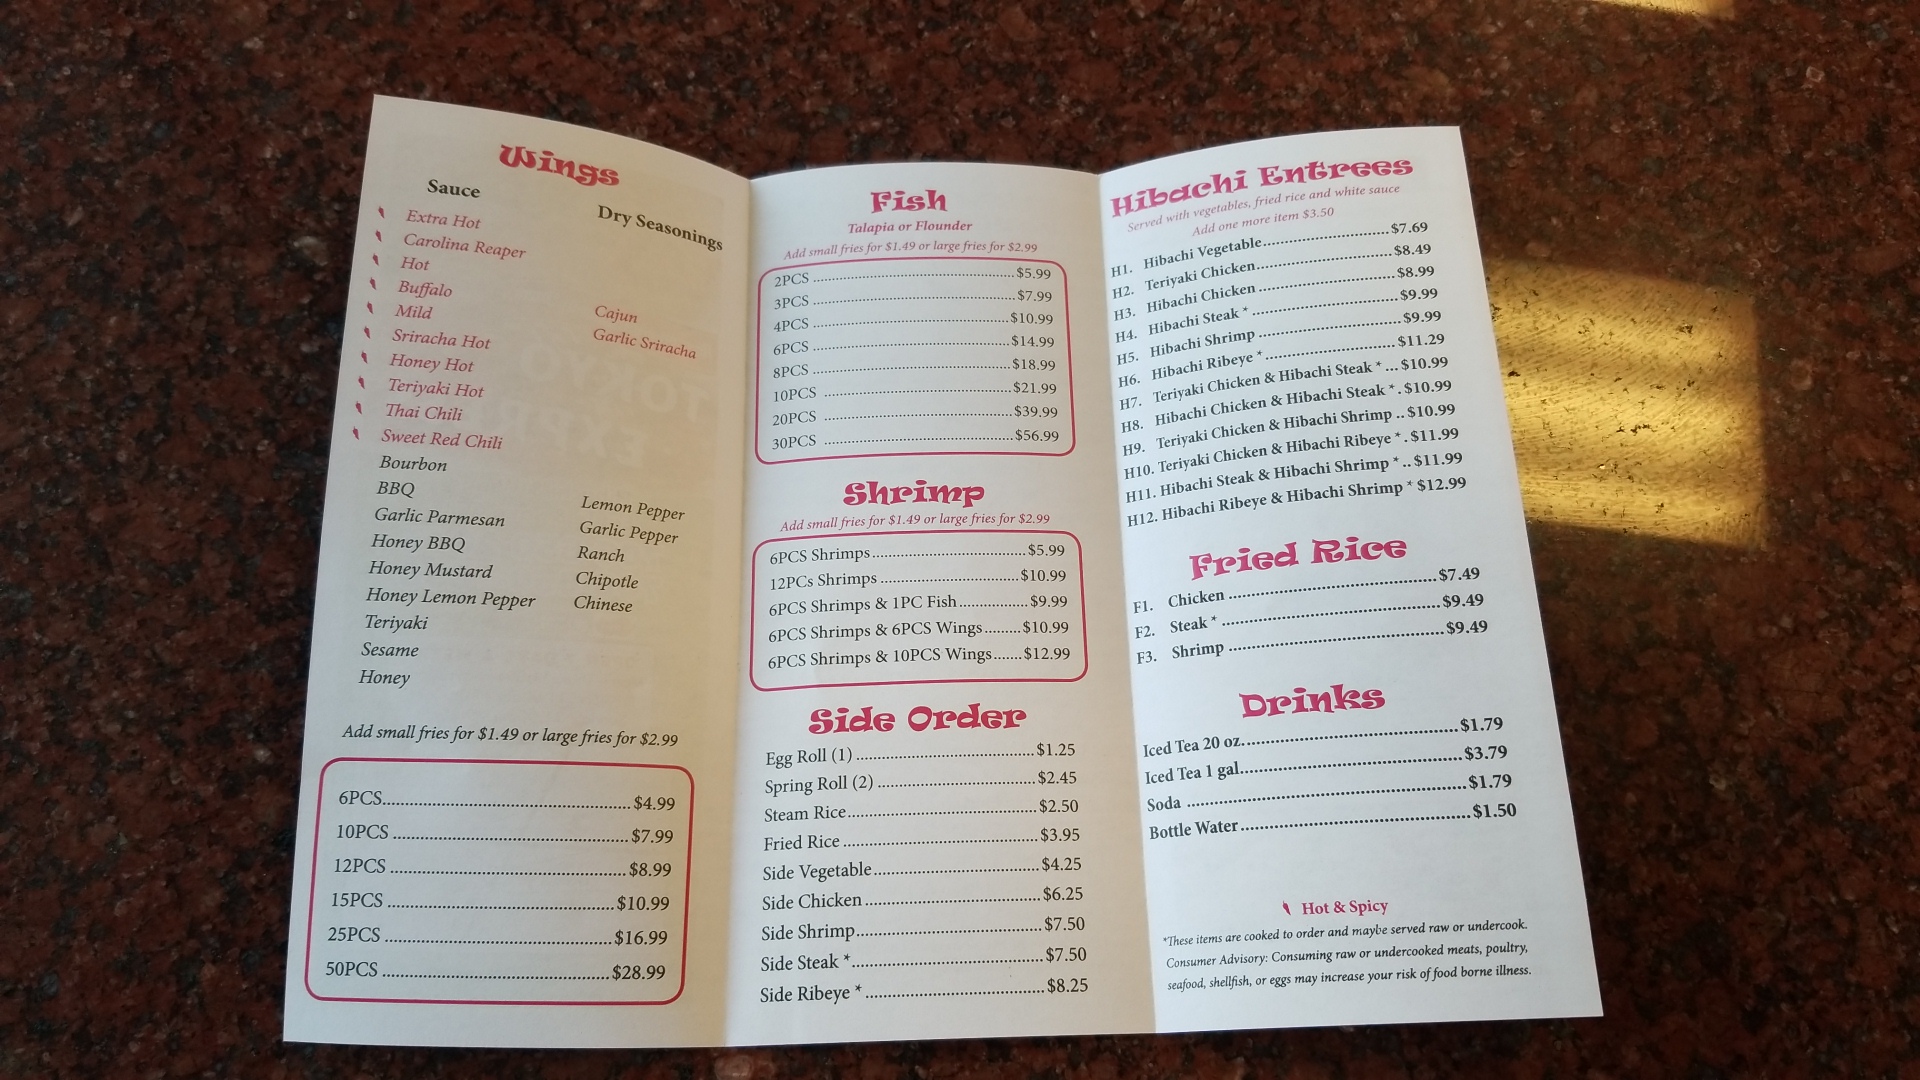 Wings
Sauce
Extra Hot
Carolina Reaper
Hot
Buffalo
Mild
Sriracha Hot
Honey Hot
Teriyaki Hot
Thai Chili
Sweet Red Chili
Bourbon
BBQ
Garlic Parmesan
Honey BBQ
Honey Mustard
Honey Lemon Pepper
Teriyaki
Sesame
Honey
Dry Seasonings
Cajun
Garlic Sriracha
Lemon Pepper
Garlic Pepper
Ranch
Chipotle
Chinese
Add small fries for $1.49 or large fries for $2.99
6PCS $4.99
10PCS $7.99
12PCS $8.99
15PCS $10.99
25PCS $16.99
50PCS $28.99
Fish
Talapia or Flounder
Add small fries for $1.49 or large fries for $2.99
2PCS $5.99
3PCS $7.99
4PCS $10.99
6PCS $14.99
8PCS $18.99
10PCS $21.99
20PCS $39.99
30PCS $56.99
Shrimp
Add small fries for $1.49 or large fries for $2.99
6PCS Shrimps $5.99
12PCs Shrimps $10.99
6PCS Shrimps & 1PC Fish $9.99
6PCS Shrimps & 6PCS Wings $10.99
6PCS Shrimps & 10PCS Wings $12.99
Side Order
Egg Roll (1) $1.25
Spring Roll (2) $2.45
Steam Rice $2.50
Fried Rice $3.95
Side Vegetable $4.25
Side Chicken $6.25
Side Shrimp $7.50
Side Steak * $7.50
Side Ribeye * $8.25
Hibachi Entrees
Served with vegetables, fried rice and white sauce
Add one more item $3.50
H1. Hibachi Vegetable $7.69
H2. Teriyaki Chicken $8.49
H3. Hibachi Chicken $8.99
H4. Hibachi Steak * $9.99
H5. Hibachi Shrimp $9.99
H6. Hibachi Ribeye * $11.29
H7. Teriyaki Chicken & Hibachi Steak * $10.99
H8. Hibachi Chicken & Hibachi Steak * $10.99
H9. Teriyaki Chicken & Hibachi Shrimp $10.99
H10. Teriyaki Chicken & Hibachi Ribeye * $11.99
H11. Hibachi Steak & Hibachi Shrimp * $11.99
H12. Hibachi Ribeye & Hibachi Shrimp * $12.99
Fried Rice
F1. Chicken $7.49
F2. Steak * $9.49
F3. Shrimp $9.49
Drinks
Iced Tea 20 oz. $1.79
Iced Tea 1 gal. $3.79
Soda $1.79
Bottle Water $1.50
Hot & Spicy
*These items are cooked to order and maybe served raw or undercook.
Consumer Advisory: Consuming raw or undercooked meats, poultry,
seafood, shellfish, or eggs may increase your risk of food borne illness.